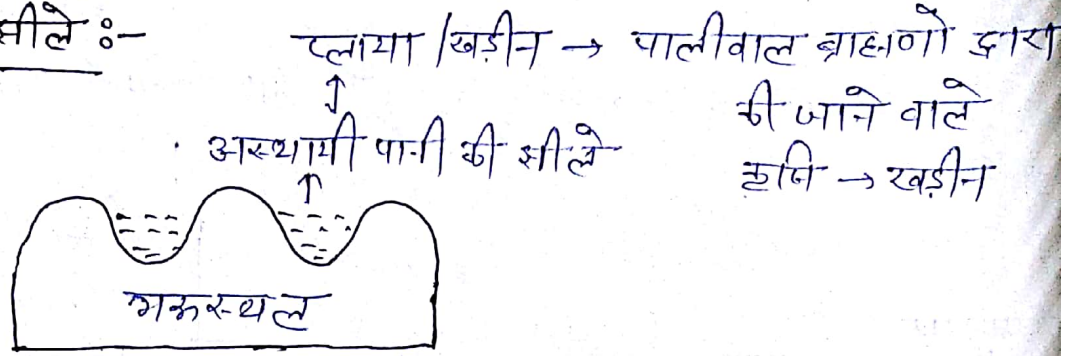 झीले :-
प्लाया / खड़ीन → पालीवाल ब्राह्मणो द्वारा
की जाने वाले
कृषि → खड़ीन
अस्थायी पानी की झीले
मरुस्थल